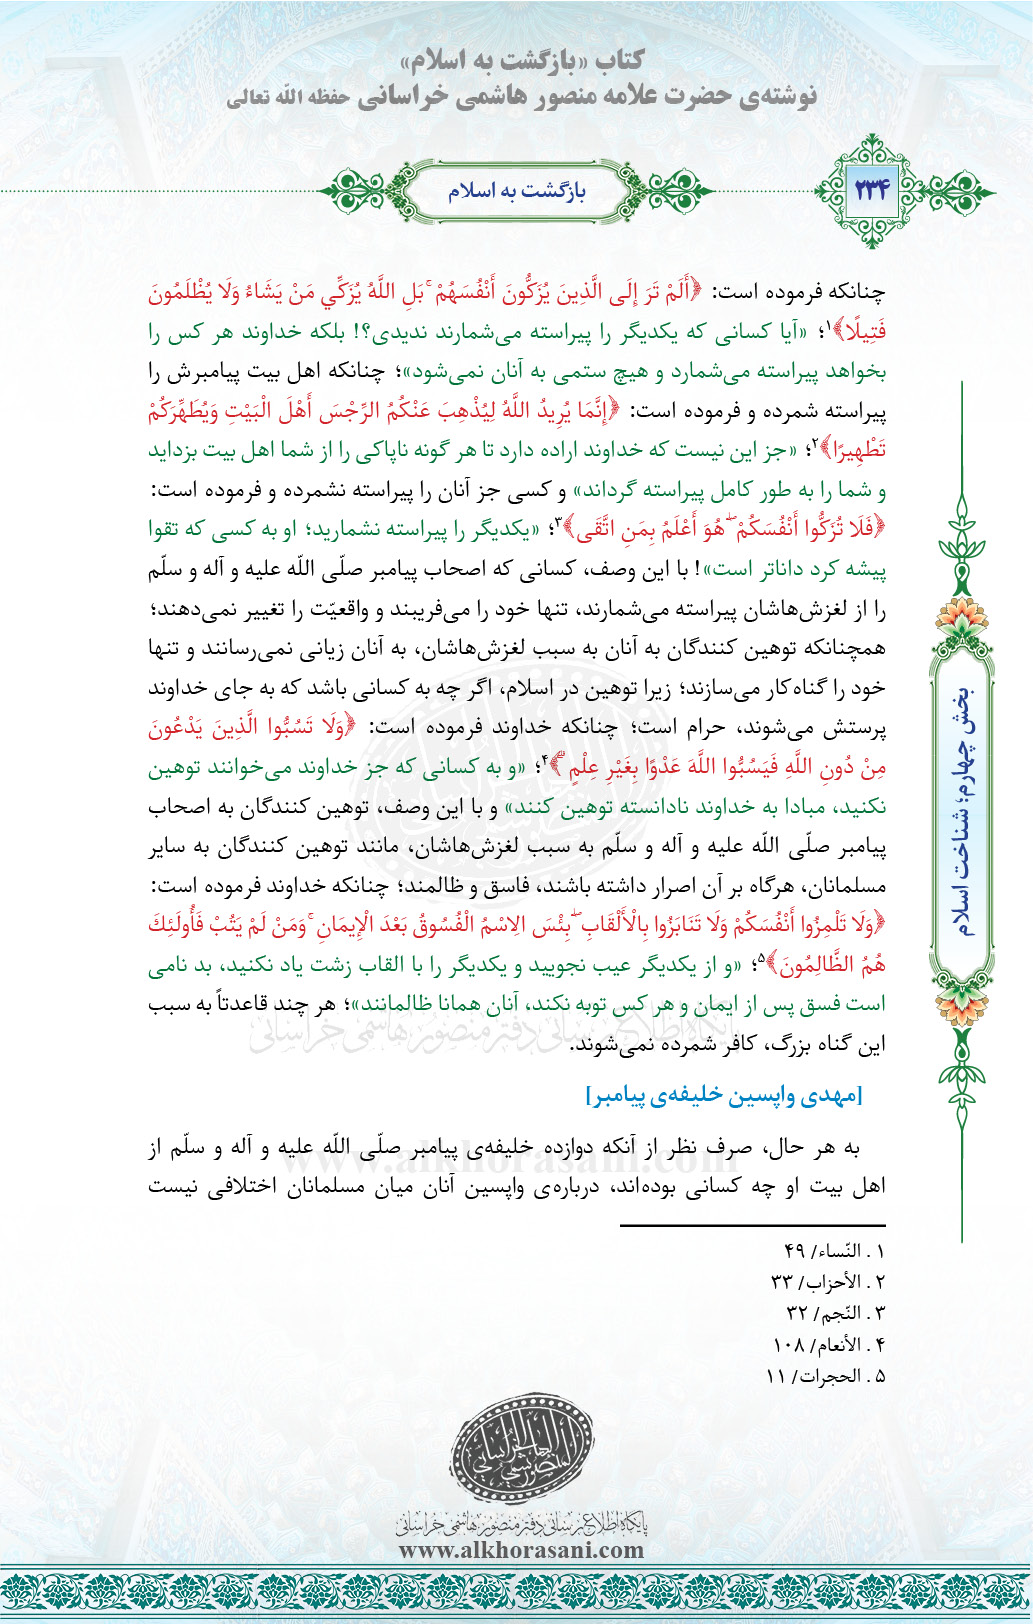 کتاب «بازگشت به اسلام»
نوشته‌ی حضرت علامه منصور هاشمی خراسانی حفظه الله تعالی
۲۳۴
بازگشت به اسلام
چنانکه فرموده است: ﴿أَلَمْ تَرَ إِلَى الَّذِينَ يُزَكُّونَ أَنْفُسَهُمْ ۚ بَلِ اللَّهُ يُزَكِّي مَنْ يَشَاءُ وَلَا يُظْلَمُونَ
فَتِيلًا﴾۱؛ «آیا کسانی که یکدیگر را پیراسته می‌شمارند ندیدی؟! بلکه خداوند هر کس را
بخواهد پیراسته می‌شمارد و هیچ ستمی به آنان نمی‌شود»؛ چنانکه اهل بیت پیامبرش را
پیراسته شمرده و فرموده است: ﴿إِنَّمَا يُرِيدُ اللَّهُ لِيُذْهِبَ عَنْكُمُ الرِّجْسَ أَهْلَ الْبَيْتِ وَيُطَهِّرَكُمْ
تَطْهِيرًا﴾۲؛ «جز این نیست که خداوند اراده دارد تا هر گونه ناپاکی را از شما اهل بیت بزداید
و شما را به طور کامل پیراسته گرداند» و کسی جز آنان را پیراسته نشمرده و فرموده است:
﴿فَلَا تُزَكُّوا أَنْفُسَكُمْ ۖ هُوَ أَعْلَمُ بِمَنِ اتَّقَى﴾۳؛ «یکدیگر را پیراسته نشمارید؛ او به کسی که تقوا
پیشه کرد داناتر است»! با این وصف، کسانی که اصحاب پیامبر صلّی اللّه علیه و آله و سلّم
را از لغزش‌هاشان پیراسته می‌شمارند، تنها خود را می‌فریبند و واقعیّت را تغییر نمی‌دهند؛
همچنانکه توهین کنندگان به آنان به سبب لغزش‌هاشان، به آنان زیانی نمی‌رسانند و تنها
خود را گناه‌کار می‌سازند؛ زیرا توهین در اسلام، اگر چه به کسانی باشد که به جای خداوند
پرستش می‌شوند، حرام است؛ چنانکه خداوند فرموده است: ﴿وَلَا تَسُبُّوا الَّذِينَ يَدْعُونَ
مِنْ دُونِ اللَّهِ فَيَسُبُّوا اللَّهَ عَدْوًا بِغَيْرِ عِلْمٍ ۗ﴾۴؛ «و به کسانی که جز خداوند می‌خوانند توهین
نکنید، مبادا به خداوند نادانسته توهین کنند» و با این وصف، توهین کنندگان به اصحاب
پیامبر صلّی اللّه علیه و آله و سلّم به سبب لغزش‌هاشان، مانند توهین کنندگان به سایر
مسلمانان، هرگاه بر آن اصرار داشته باشند، فاسق و ظالمند؛ چنانکه خداوند فرموده است:
﴿وَلَا تَلْمِزُوا أَنْفُسَكُمْ وَلَا تَنَابَزُوا بِالْأَلْقَابِ ۖ بِئْسَ الِاسْمُ الْفُسُوقُ بَعْدَ الْإِيمَانِ ۚ وَمَنْ لَمْ يَتُبْ فَأُولَئِكَ
هُمُ الظَّالِمُونَ﴾۵؛ «و از یکدیگر عیب نجویید و یکدیگر را با القاب زشت یاد نکنید، بد نامی
است فسق پس از ایمان و هر کس توبه نکند، آنان همانا ظالمانند»؛ هر چند قاعدتاً به سبب
این گناه بزرگ، کافر شمرده نمی‌شوند.
[مهدی واپسین خلیفه‌ی پیامبر]
به هر حال، صرف نظر از آنکه دوازده خلیفه‌ی پیامبر صلّی اللّه علیه و آله و سلّم از
اهل بیت او چه کسانی بوده‌اند، درباره‌ی واپسین آنان میان مسلمانان اختلافی نیست
۱ . النّساء/ ۴۹
۲ . الأحزاب/ ۳۳
۳ . النّجم/ ۳۲
۴ . الأنعام/ ۱۰۸
۵ . الحجرات/ ۱۱
بخش چهارم؛ شناخت اسلام
پایگاه اطلاع‌رسانی دفتر منصور هاشمی خراسانی
www.alkhorasani.com